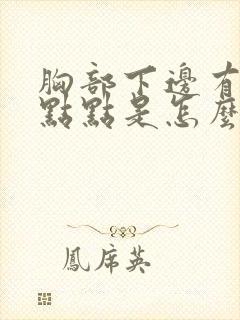 胸部下邊有
點點是怎麼
鳳席英